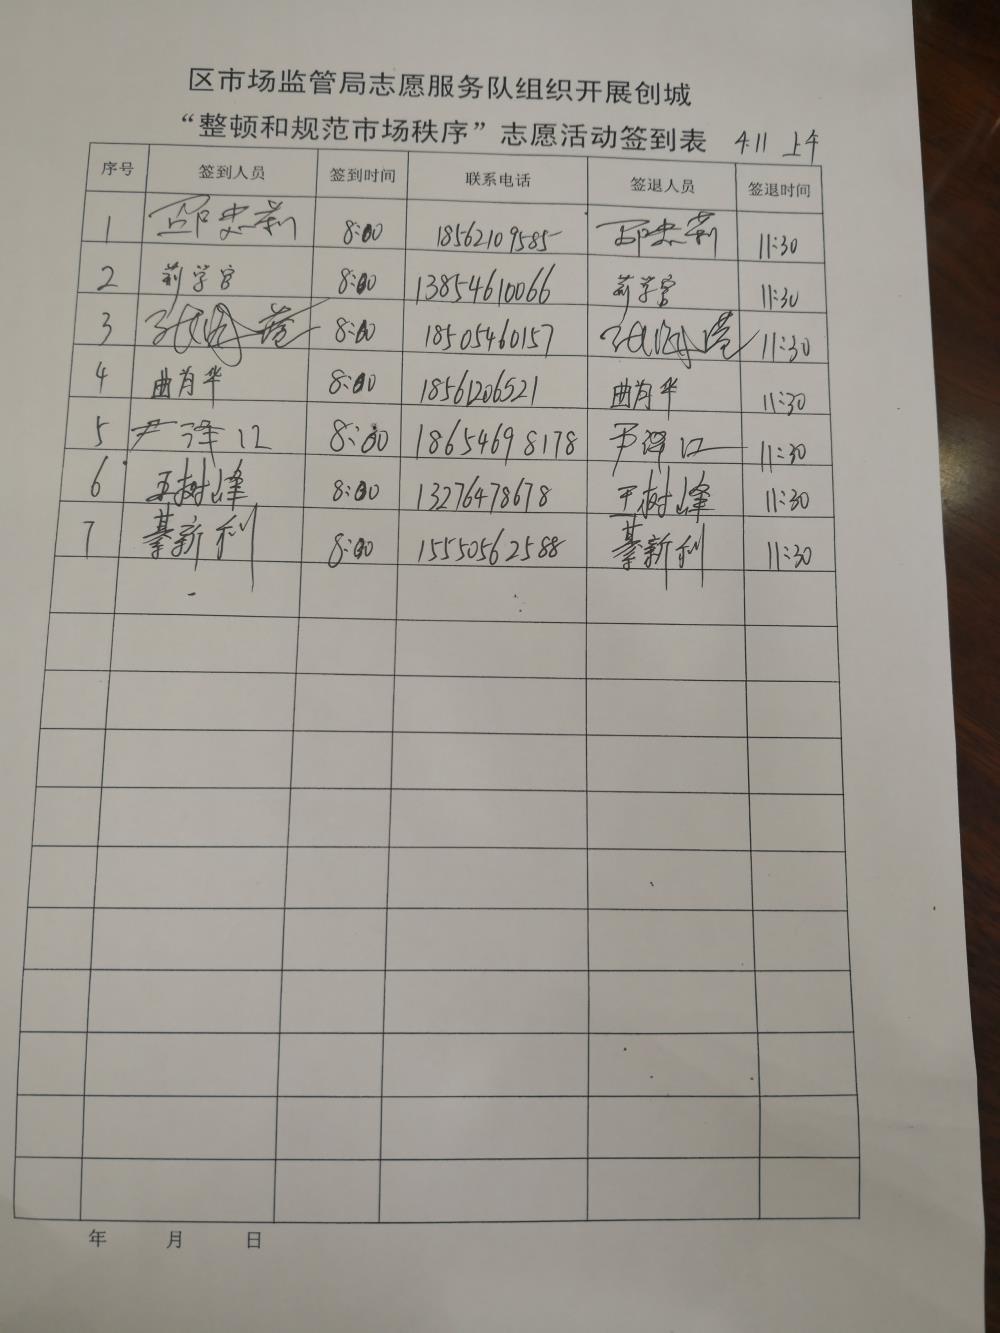 区市场监管局志愿服务队组织开展创城
“整顿和规范市场秩序”志愿活动签到表 4.11 上午
序号 签到人员 签到时间 联系电话 签退人员 签退时间
1 邵忠莉 8:00 18562109585 邵忠莉 11:30
2 8:00 13854610066 11:30
3 8:00 18505460157 11:30
4 曲肖华 8:00 18561206521 曲肖华 11:30
5 尹泽江 8:00 18654698178 尹泽江 11:30
6 王树峰 8:00 13276478678 王树峰 11:30
7 綦新利 8:00 15550562588 綦新利 11:30
年 月 日